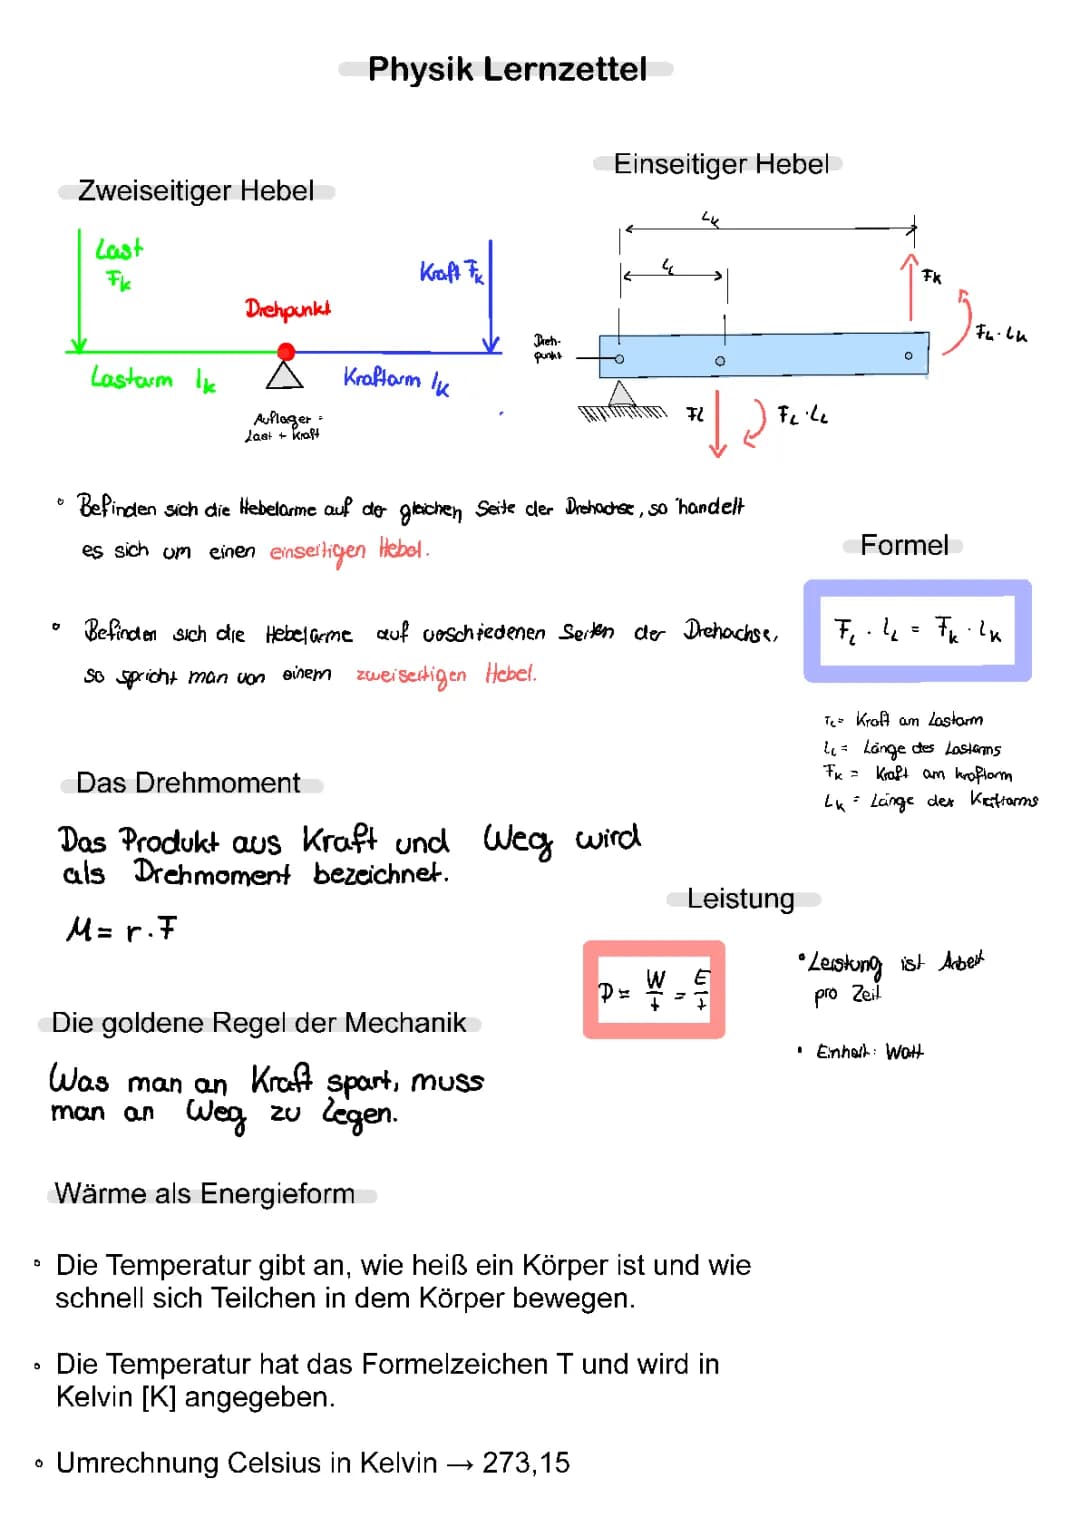 Physik Lernzettel
Zweiseitiger Hebel
Last
Fk
Drehpunkt
Kraft Fk
Lastarm lk
Kraftarm lk
Auflager =
Last + Kraft
Einseitiger Hebel
LK
LL
Dreh-
punkt
FK
FL · LK
FL
FL · LL
° Befinden sich die Hebelarme auf der gleichen Seite der Drehachse, so handelt
es sich um einen einseitigen Hebel.
° Befinden sich die Hebelarme auf verschiedenen Seiten der Drehachse,
so spricht man von einem zweiseitigen Hebel.
Formel
FL · lL = Fk · lK
FL = Kraft am Lastarm
lL = Länge des Lastarms
FK = Kraft am Kraftarm
LK = Länge des Kraftarms
Das Drehmoment
Das Produkt aus Kraft und Weg wird
als Drehmoment bezeichnet.
M = r · F
Leistung
P = W/t = E/t
• Leistung ist Arbeit
pro Zeit
• Einheit: Watt
Die goldene Regel der Mechanik
Was man an Kraft spart, muss
man an Weg zu legen.
Wärme als Energieform
° Die Temperatur gibt an, wie heiß ein Körper ist und wie
schnell sich Teilchen in dem Körper bewegen.
° Die Temperatur hat das Formelzeichen T und wird in
Kelvin [K] angegeben.
° Umrechnung Celsius in Kelvin → 273,15